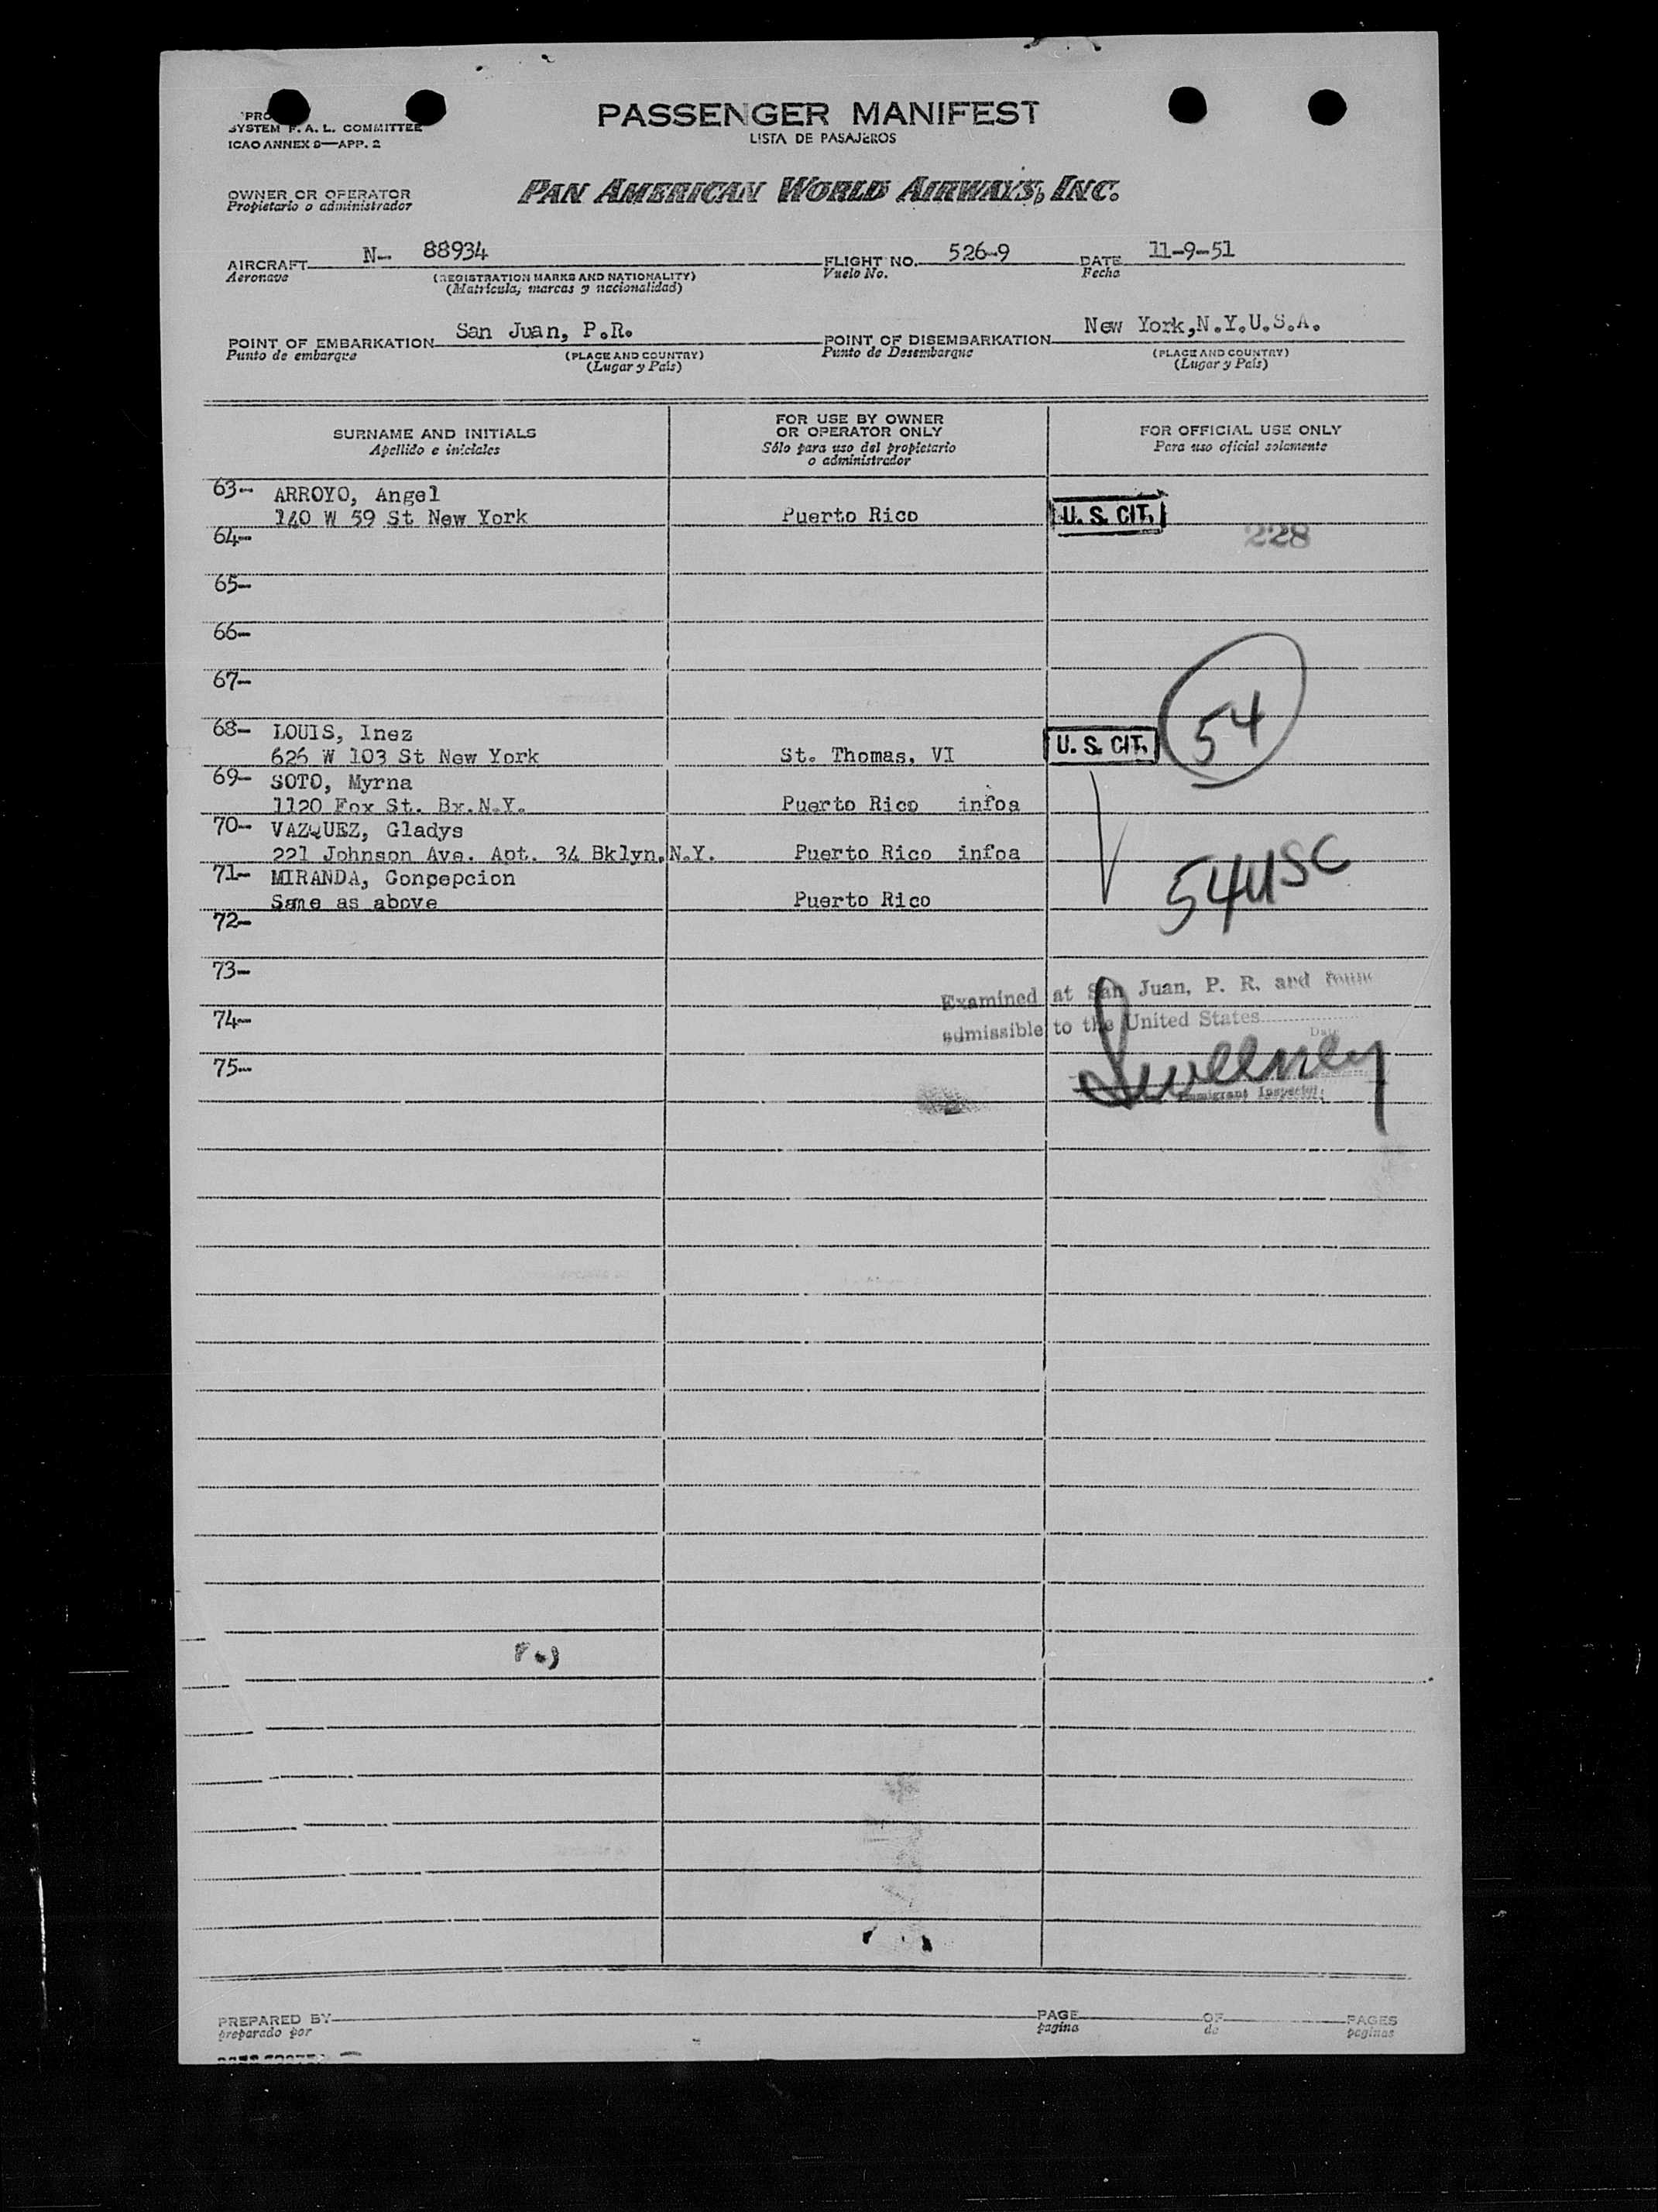 SYSTEM F. A. L. COMMITTEE
ICAO ANNEX 9—APP. 2
PASSENGER MANIFEST
LISTA DE PASAJEROS
OWNER OR OPERATOR
Propietario o administrador
PAN AMERICAN WORLD AIRWAYS, INC.
AIRCRAFT N- 88934 FLIGHT NO. 526-9 DATE 11-9-51
Aeronave (REGISTRATION MARKS AND NATIONALITY) Vuelo No. Fecha
(Matricula, marcas y nacionalidad)
POINT OF EMBARKATION San Juan, P.R. POINT OF DISEMBARKATION New York,N.Y.U.S.A.
Punto de embarque (PLACE AND COUNTRY) Punto de Desembarque (PLACE AND COUNTRY)
(Lugar y País) (Lugar y País)
SURNAME AND INITIALS
Apellido e iniciales
FOR USE BY OWNER
OR OPERATOR ONLY
Sólo para uso del propietario
o administrador
FOR OFFICIAL USE ONLY
Para uso oficial solamente
63- ARROYO, Angel
140 W 59 St New York Puerto Rico U. S. CIT.
64- 228
65-
66-
67-
54
68- LOUIS, Inez
626 W 103 St New York St. Thomas, VI U. S. CIT.
69- SOTO, Myrna
1120 Fox St. Bx.N.Y. Puerto Rico infoa
70- VAZQUEZ, Gladys
221 Johnson Ave. Apt. 34 Bklyn.N.Y. Puerto Rico infoa
71- MIRANDA, Concepcion 54USC
Same as above Puerto Rico
72-
73-
Examined at San Juan, P. R. and found
74-
admissible to the United States
Date
75-
Sweeney
Immigrant Inspector
PREPARED BY PAGE OF PAGES
preparado por pagina de paginas